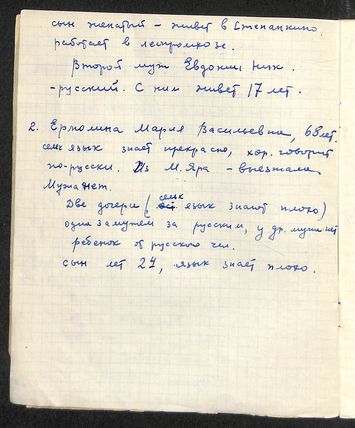 сын женатый – живет в Степанкино
работает в леспромхозе.
Второй муж Евдокии Ник.
- русский. С ним живет 17 лет.
2. Ермолина Мария Васильевна, 68 лет.
сельк язык знает прекрасно, хор. говорит
по-русски. Из М. Яра – выезжала
Мужа нет.
Две дочери (сельк язык знают плохо)
одна замужем за русским, у др. мужа нет
ребенок от русского чел.
сын лет 27, язык знает плохо.